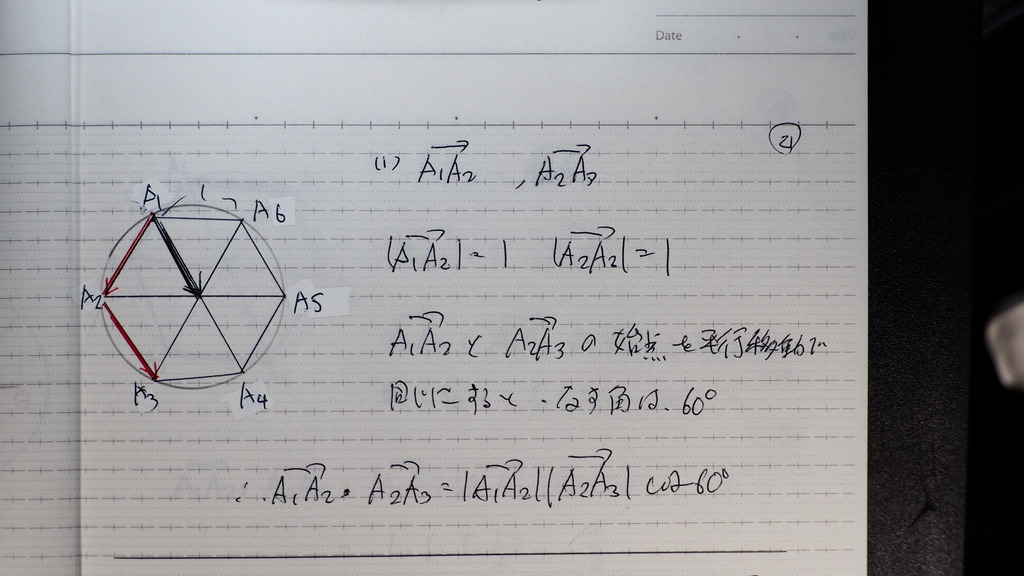 Date
㉑
(1) A₁A₂→ , A₂A₃→
A₁ 1 A6
|A₁A₂→| = 1 |A₂A₂→| = 1
A₂ A5
A₁A₂→ と A₂A₃→ の 始点を平行移動で
A₃ A₄ 同じにすると、なす角は、60°
∴ A₁A₂→・A₂A₃→ = |A₁A₂→||A₂A₃→| cos 60°